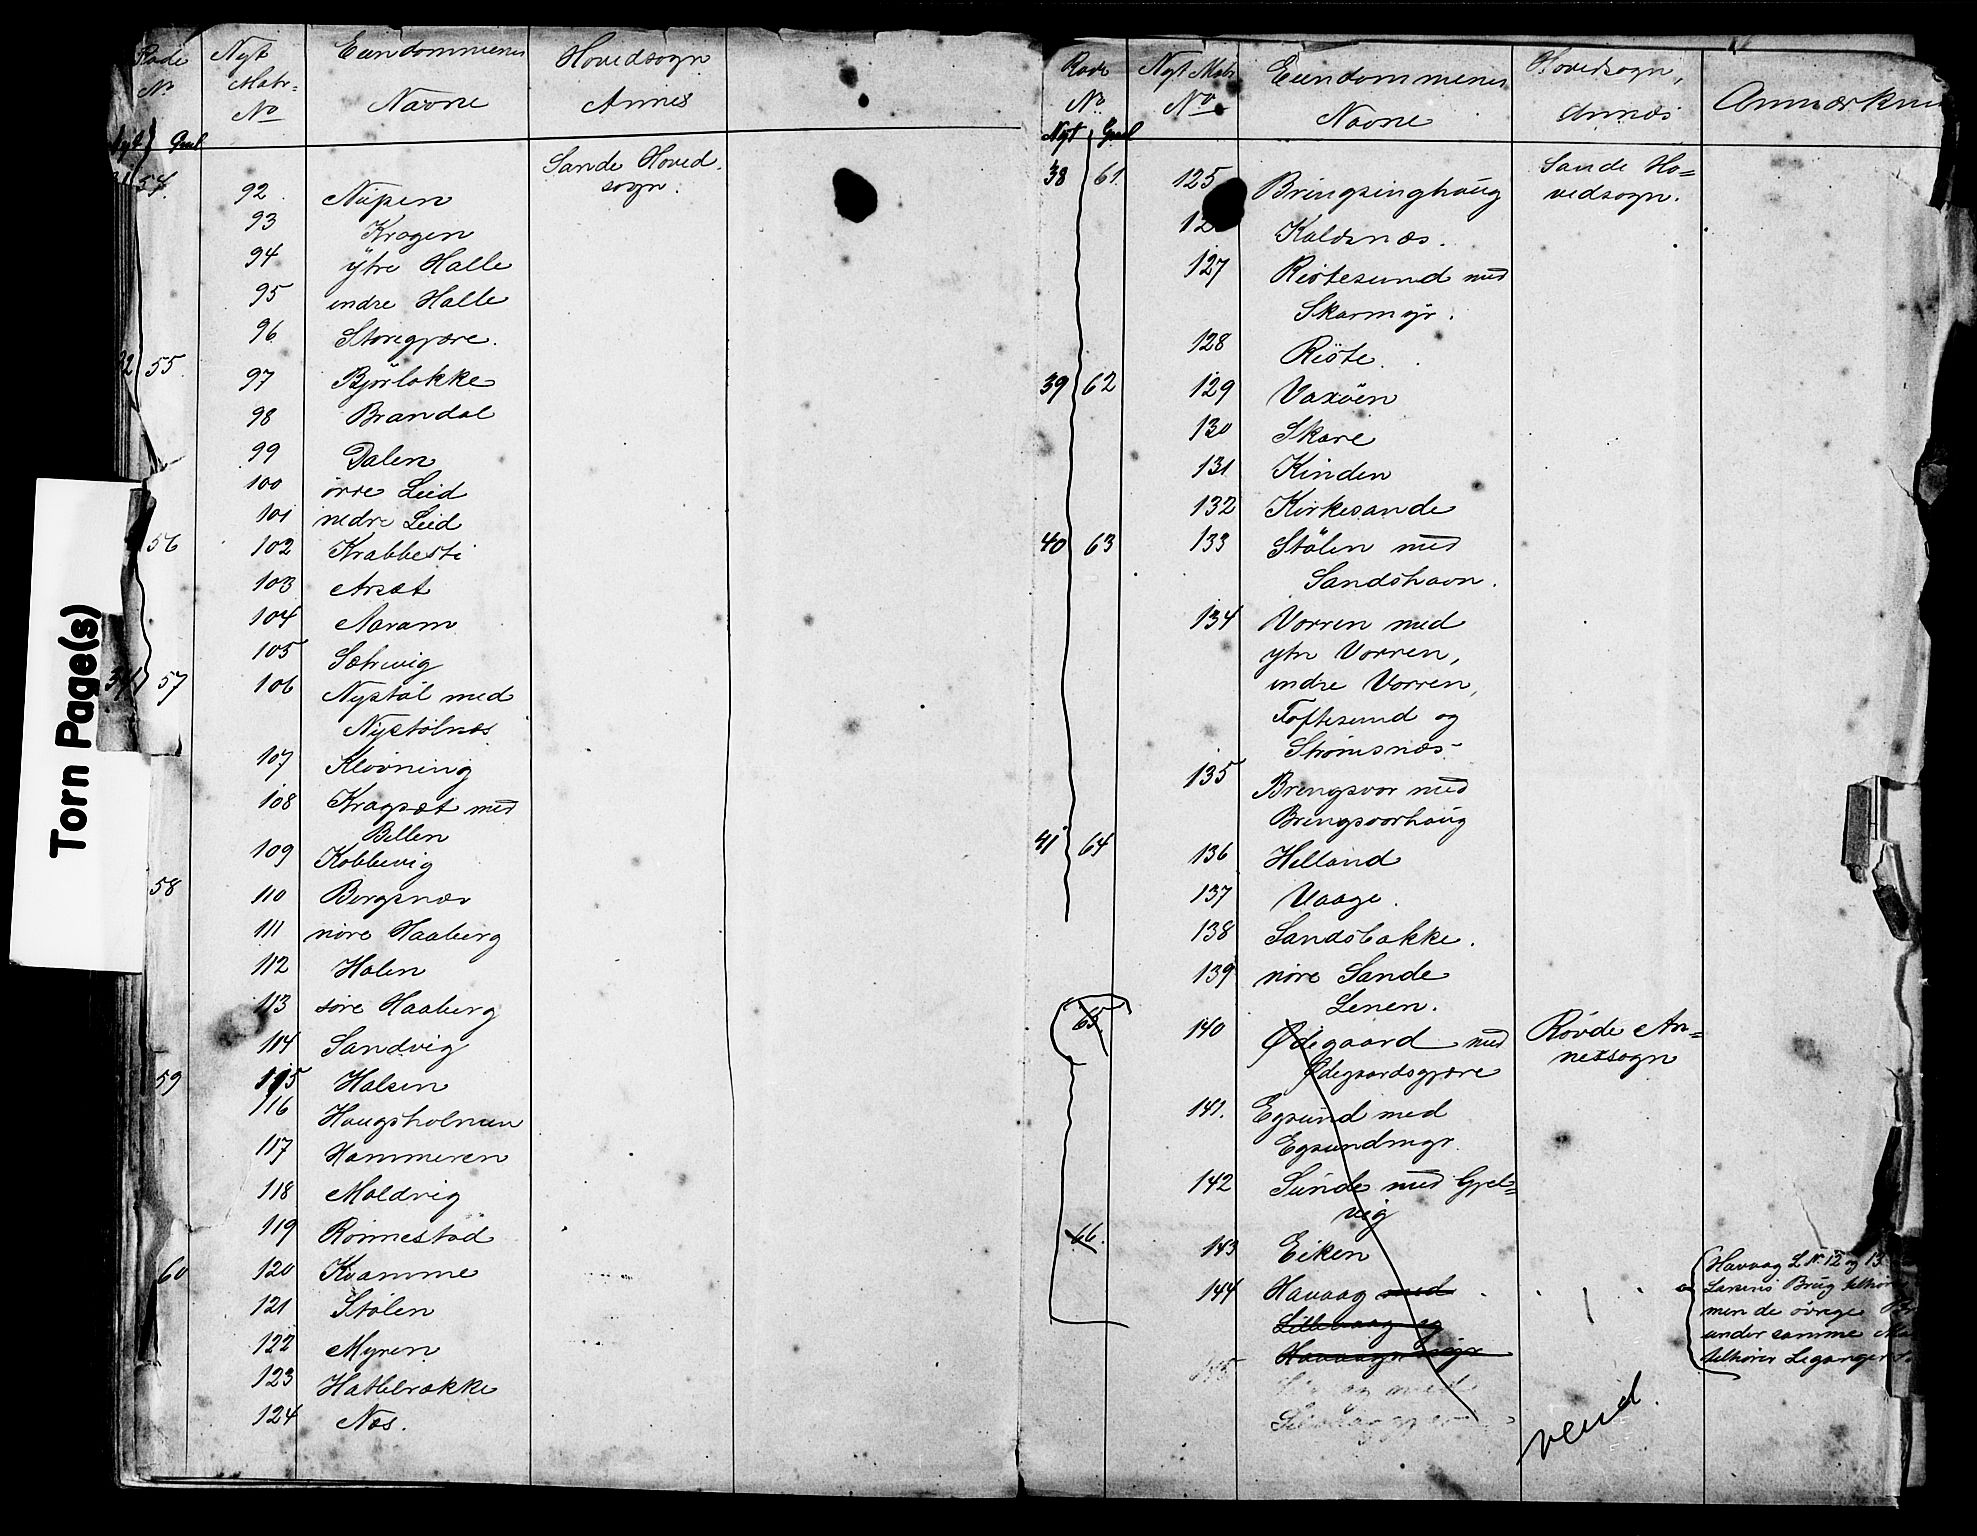 Torn Page(s)
Rode Nyt Eiendommenes Hovedsogn
No Matr. Navne Annex
No
Nyt Gml
Sande Hoved-
sogn.
54. 92 Nupen
93 Kragen
94 ytre Halle
95 indre Halle
96 Storegjære.
55 97 Bjørlokke
98 Brandal
99 Dalen
100 øvre Leid
101 nedre Leid
56 102 Krabbesti
103 Arsæt
104 Aaram
105 Sætrevig
34 57 106 Nystøl med
Nystølnæs
107 Kløvning
108 Kragsæt med
Billen
109 Kobbevig
58 110 Borgsnæs
111 nore Haaberg
112 Halen
113 søre Haaberg
114 Sandvig
59 115 Halsen
116 Haugsholmen
117 Hammeren
118 Moldvig
119 Rönnestad
60 120 Kvamme
121 Stölen
122 Myren
123 Hatlebrække
124 Næs.
Rode Nyt Matr Eiendommenes Hovedsogn, Anmærkn
No No Navne Annex
Nyt Gml
38 61. 125 Bringsinghaug Sande Ho=
vedsogn.
12 Kaldsnæs.
127 Riötesund med
Skarmyr.
128 Riöte.
39 62 129 Vaxöen
130 Skare
131 Kinden
132 Kirkesande
40 63 133 Stölen med
Sandshavn.
134 Vorren med
ytre Vorren,
indre Vorren,
Toftesund og
Strömsnæs
135 Bringsvor med
Bringsvorhaug
41 64 136 Helland
137 Vaage.
138 Sandsbakke.
139 nore Sande
Lenen.
65. 140 Ødegaard med Røvde An=
Ødegaardsgjære nexsogn
141. Egsund med
Egsundmyr.
142 Sunde med Gjel=
vig
66. 143 Eiken
144 Havaag med
Lillevaag og
Havaagsmyr
145
med
Havaag L No 12 og 13
Larsens Brug tilhör
men de övrige Br
under samme Ma
tilhörer Leganger
vend.